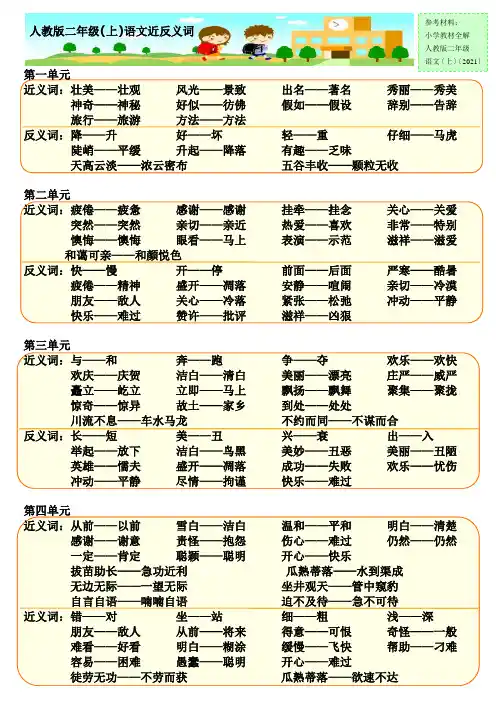 人教版二年级(上)语文近反义词
参考材料：
小学教材全解
人教版二年级
语文（上）（2021）
第一单元
近义词：壮美——壮观 风光——景致 出名——著名 秀丽——秀美
神奇——神秘 好似——彷佛 假如——假设 辞别——告辞
旅行——旅游 方法——方法
反义词：降——升 好——坏 轻——重 仔细——马虎
陡峭——平缓 升起——降落 有趣——乏味
天高云淡——浓云密布 五谷丰收——颗粒无收
第二单元
近义词：疲倦——疲惫 感谢——感谢 挂牵——挂念 关心——关爱
突然——突然 亲切——亲近 热爱——喜欢 非常——特别
懊悔——懊悔 眼看——马上 表演——示范 滋祥——滋爱
和蔼可亲——和颜悦色
反义词：快——慢 开——停 前面——后面 严寒——酷暑
疲倦——精神 盛开——凋落 安静——喧闹 亲切——冷漠
朋友——敌人 关心——冷落 紧张——松弛 冲动——平静
快乐——难过 赞许——批评 滋祥——凶狠
第三单元
近义词：与——和 奔——跑 争——夺 欢乐——欢快
欢庆——庆贺 洁白——清白 美丽——漂亮 庄严——威严
矗立——屹立 立即——马上 飘扬——飘舞 聚集——聚拢
惊奇——惊异 故土——家乡 到处——处处
川流不息——车水马龙 不约而同——不谋而合
反义词：长——短 美——丑 兴——衰 出——入
举起——放下 洁白——乌黑 美妙——丑恶 美丽——丑陋
英雄——懦夫 盛开——凋落 成功——失败 欢乐——忧伤
冲动——平静 尽情——拘谨 快乐——难过
第四单元
近义词：从前——以前 雪白——洁白 温和——平和 明白——清楚
感谢——谢意 责怪——抱怨 伤心——难过 仍然——仍然
一定——肯定 聪颖——聪明 开心——快乐
拔苗助长——急功近利 瓜熟蒂落——水到渠成
无边无际——一望无际 坐井观天——管中窥豹
自言自语——喃喃自语 迫不及待——急不可待
近义词：错——对 坐——站 细——粗 浅——深
朋友——敌人 从前——将来 得意——可恨 奇怪——一般
难看——好看 明白——糊涂 缓慢——飞快 帮助——刁难
容易——困难 愚蠢——聪明 开心——难过
徒劳无功——不劳而获 瓜熟蒂落——欲速不达